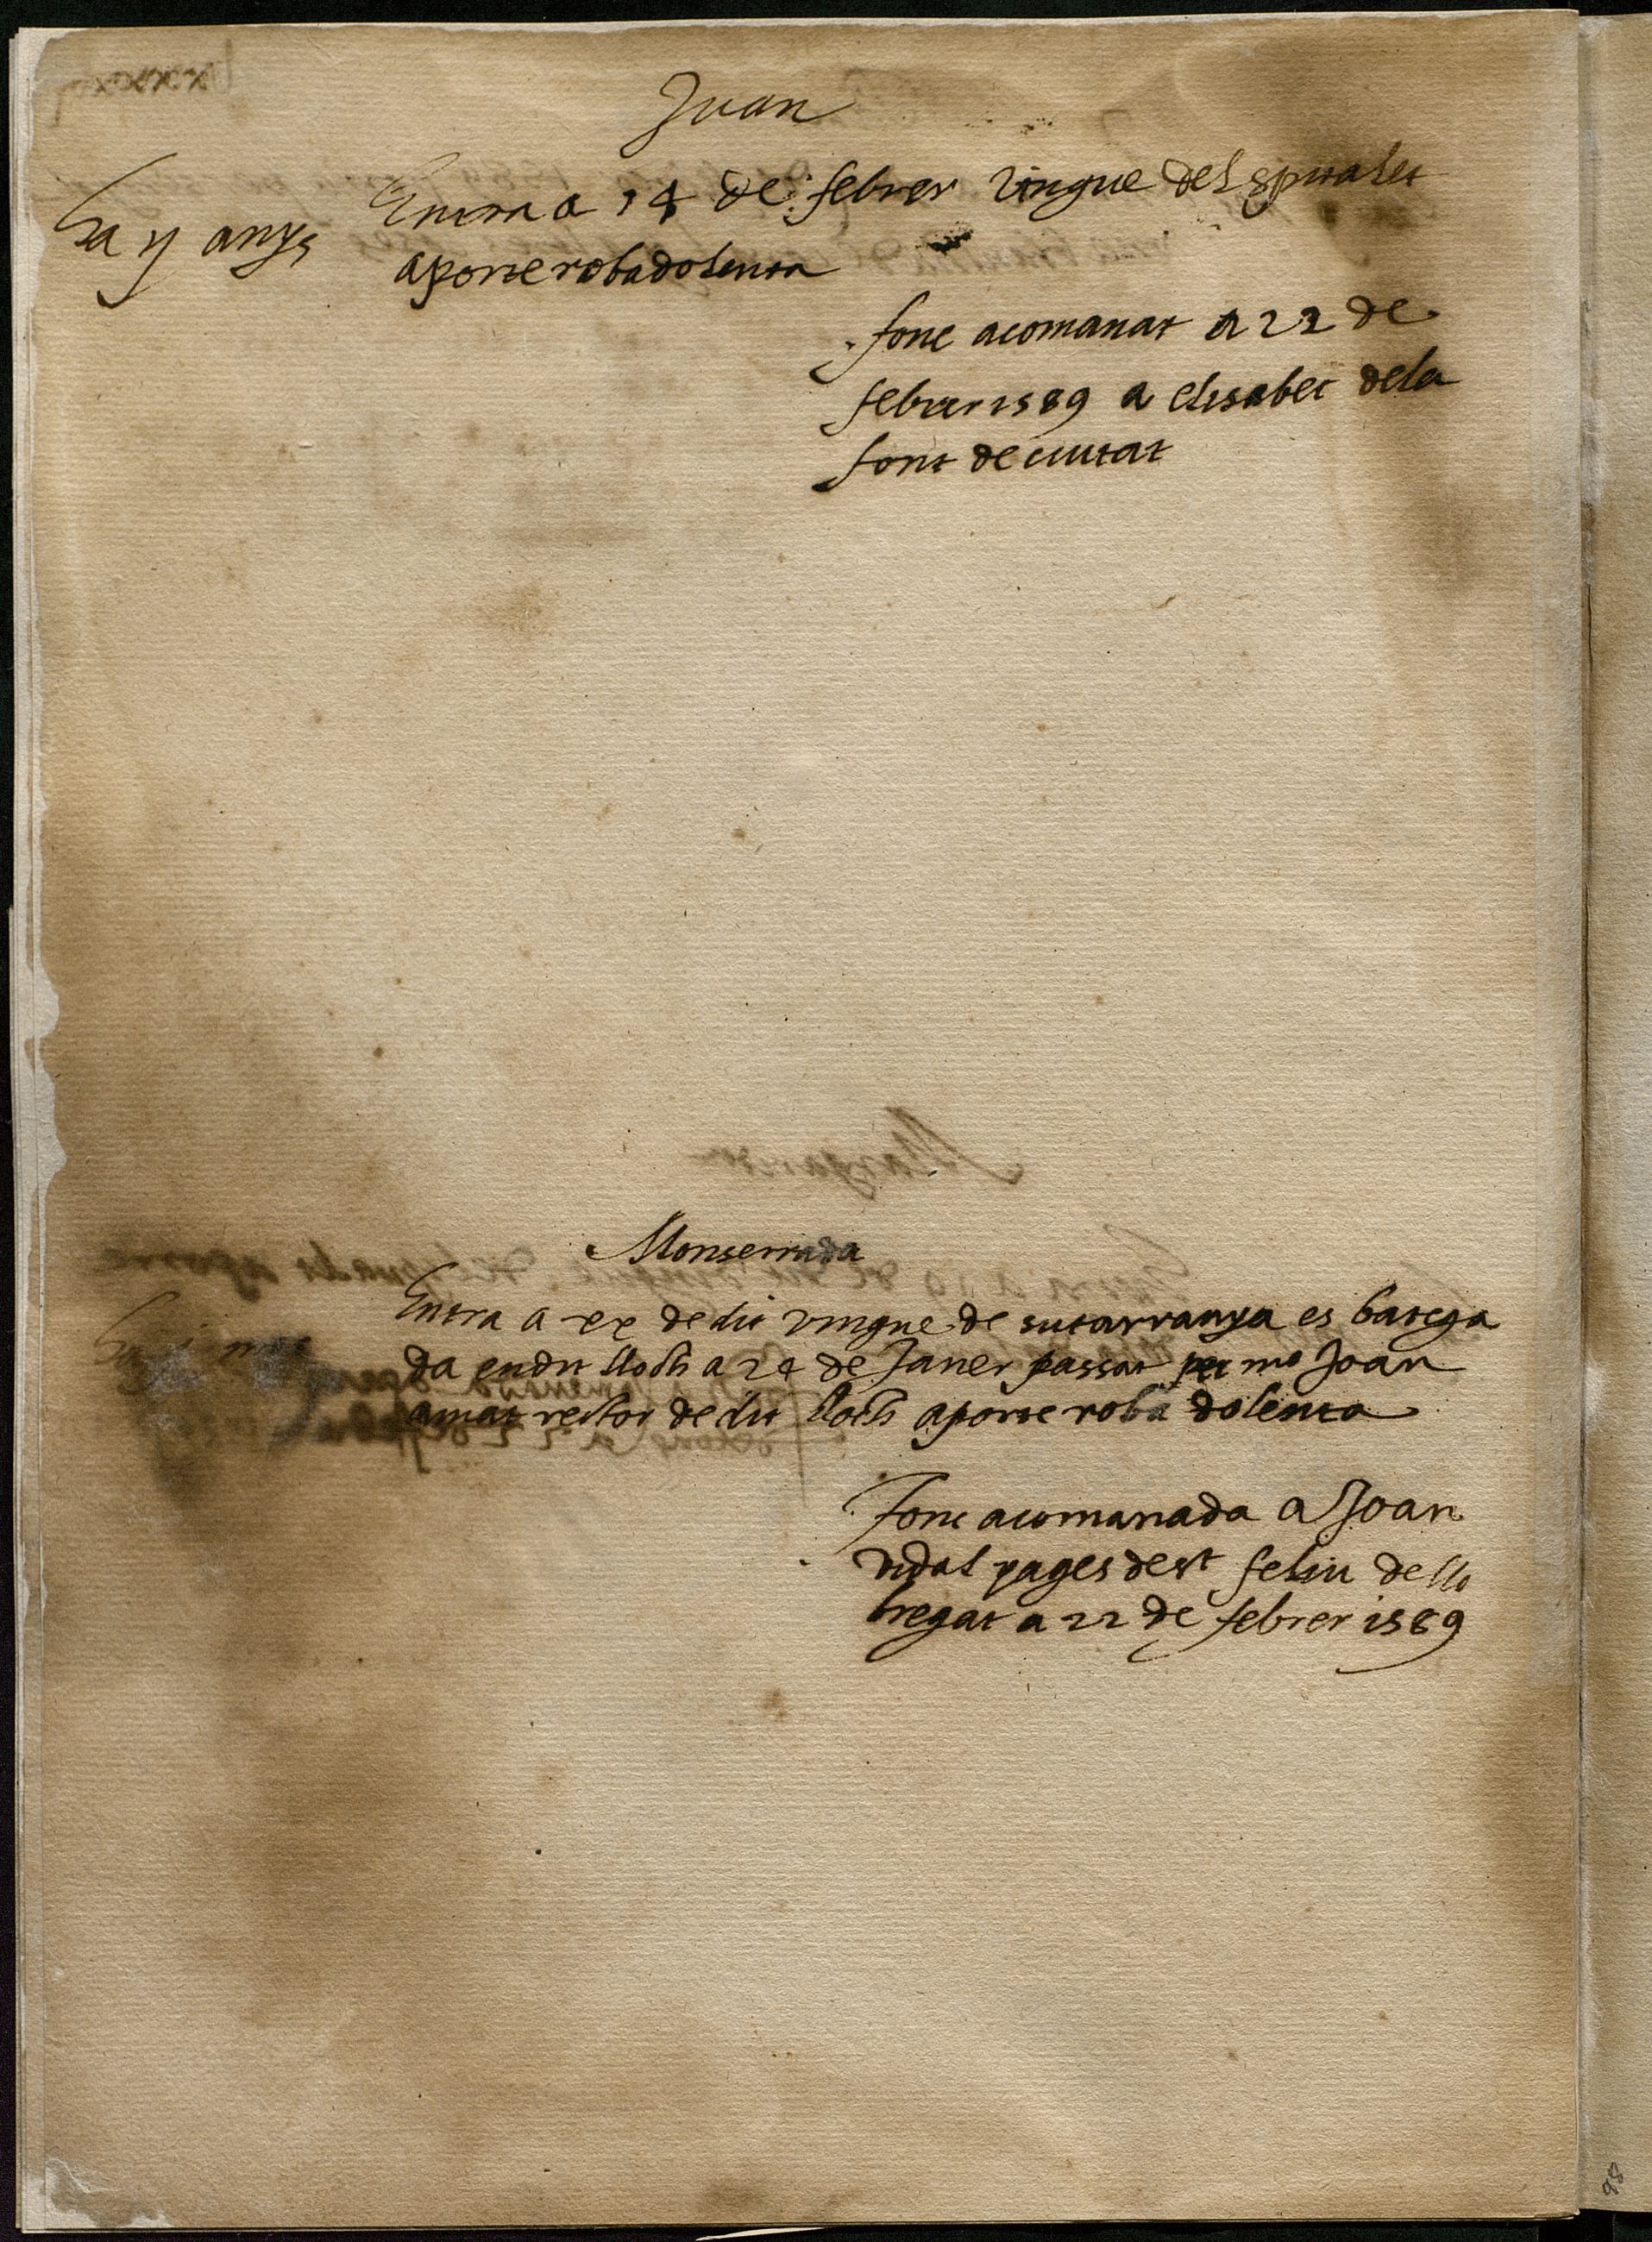 Juan
Ha y anys
Entra a 14 de febrer vingue del spitalet
aporte roba dolenta
fonc acomanat a 22 de
febrer 1589 a elisabet dela
font de ciutat
Monserrada
Entra a xx de dit vingue de sutarranya es batega
da en dit lloch a 24 de Janer passat per mo Joan
amat rector de dit lloch aporte roba dolenta
Fonc acomanada a Joan
vidal pages de st feliu de llo
bregat a 22 de febrer 1589
98